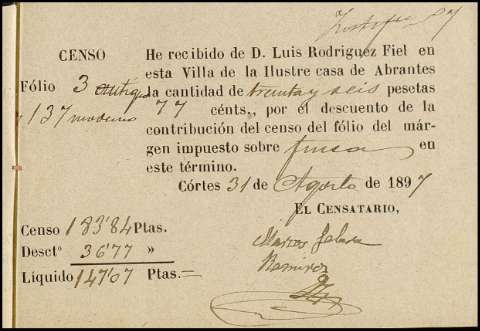 CENSO
Fólio 3 antiguo
y 137 moderno
He recibido de D. Luis Rodriguez Fiel en
esta Villa de la Ilustre casa de Abrantes
la cantidad de treinta y seis pesetas
77 cénts,, por el descuento de la
contribución del censo del fólio del már-
gen impuesto sobre fincas en
este término.
Córtes 31 de Agosto de 1897
EL CENSATARIO,
Censo 183'84 Ptas.
Desctº 36'77 »
Líquido 147'07 Ptas.=
Marcos
Ramirez